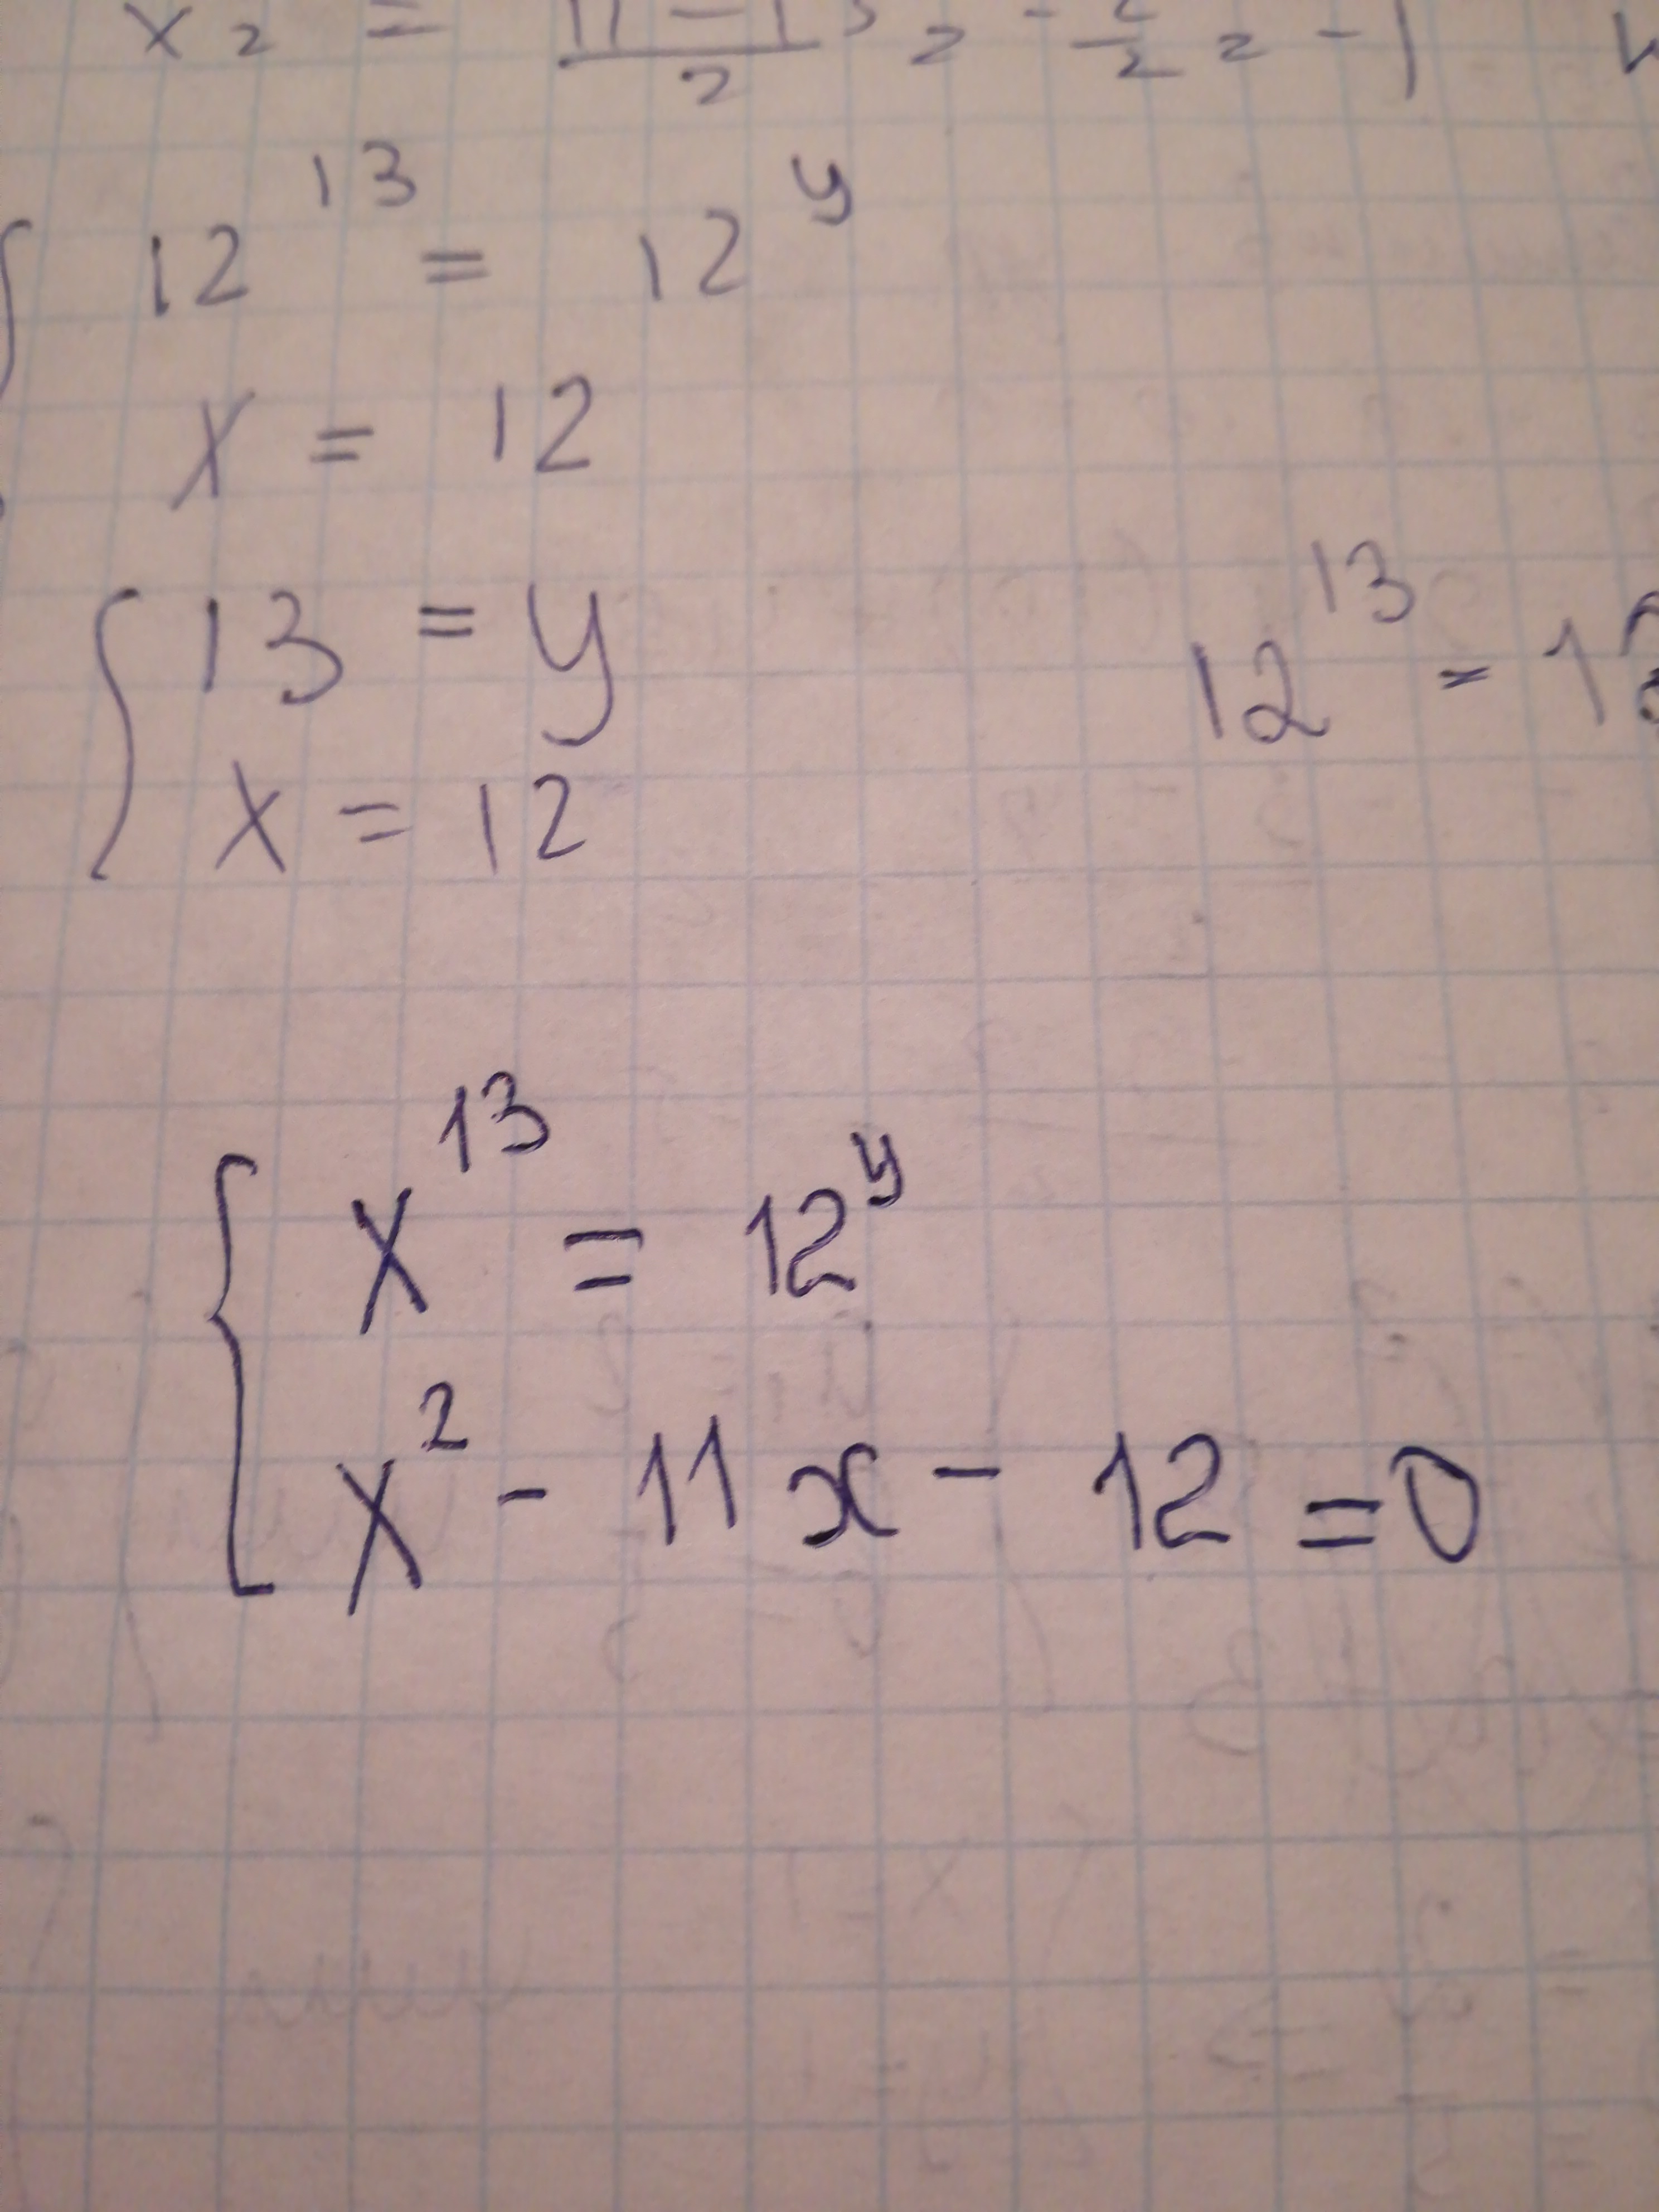 x₂ = (11 - 13)/2 = -2/2 = -1
{ 12¹³ = 12ʸ
x = 12
{ 13 = y
x = 12
12¹³ =
{ x¹³ = 12ʸ
x² - 11x - 12 = 0